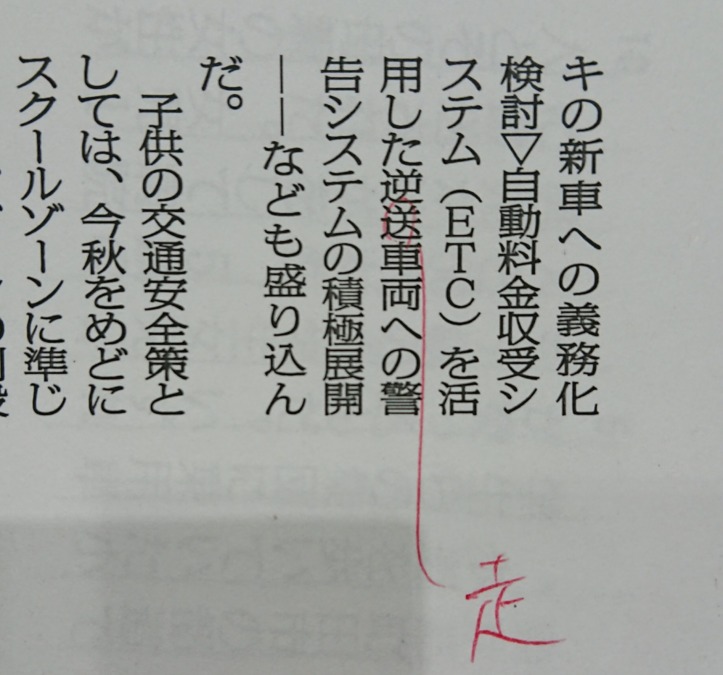 キの新車への義務化
検討▽自動料金収受シ
ステム（ＥＴＣ）を活
用した逆送車両への警
告システムの積極展開
――なども盛り込ん
だ。
子供の交通安全策と
しては、今秋をめどに
スクールゾーンに準じ
走